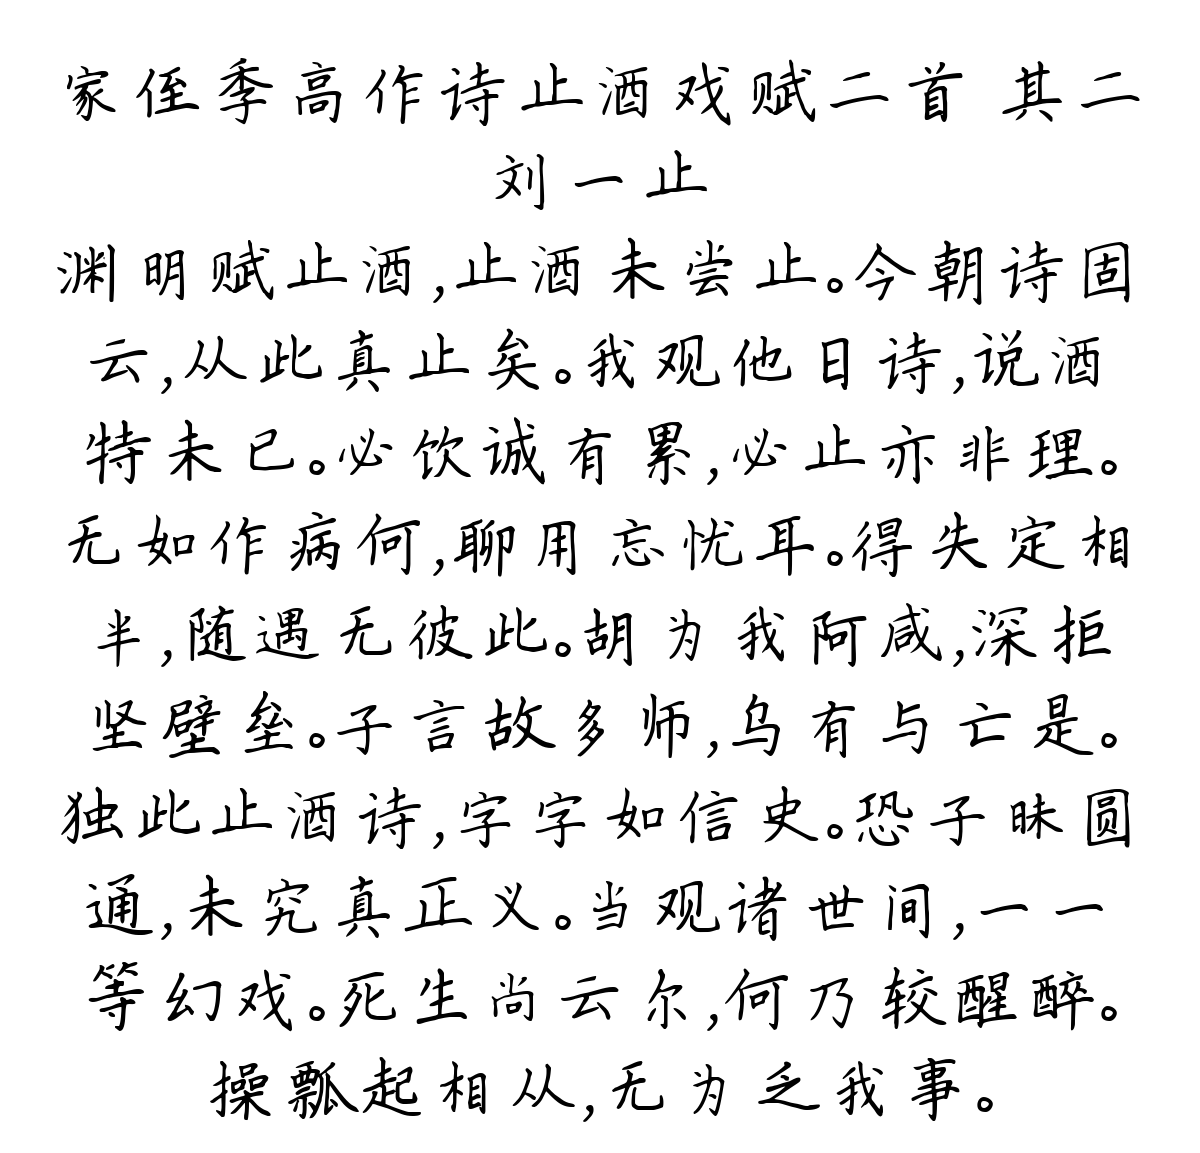 家侄季高作诗止酒戏赋二首 其二
刘一止
渊明赋止酒,止酒未尝止。今朝诗固
云,从此真止矣。我观他日诗,说酒
特未已。必饮诚有累,必止亦非理。
无如作病何,聊用忘忧耳。得失定相
半,随遇无彼此。胡为我阿咸,深拒
坚壁垒。子言故多师,乌有与亡是。
独此止酒诗,字字如信史。恐子昧圆
通,未究真正义。当观诸世间,一一
等幻戏。死生尚云尔,何乃较醒醉。
操瓢起相从,无为乏我事。